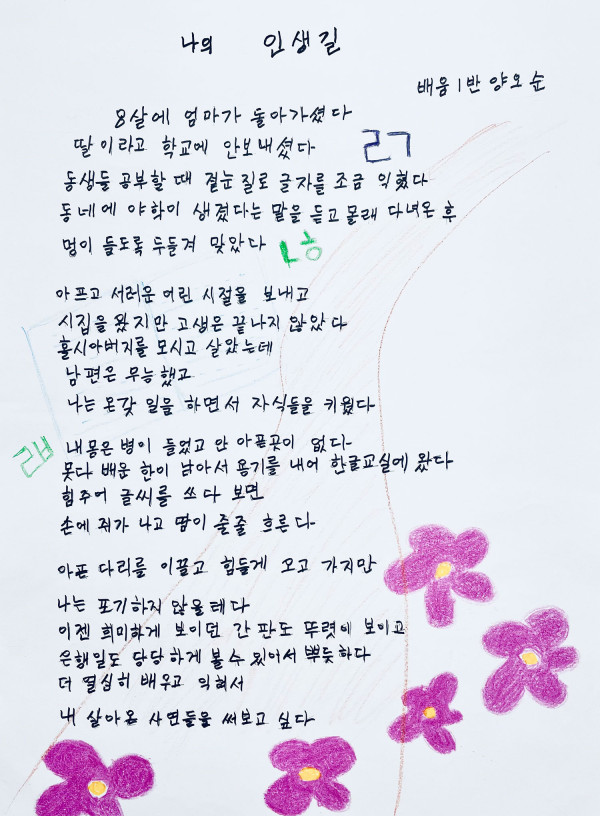 나의 인생길
배움1반 양오순
8살에 엄마가 돌아가셨다
딸이라고 학교에 안보내셨다
ㄹㄱ
동생들 공부할 때 곁눈질로 글자를 조금 익혔다
동네에 야학이 생겼다는 말을 듣고 몰래 다녀온 후
멍이 들도록 두들겨 맞았다
ㄴㅎ
아프고 서러운 어린 시절을 보내고
시집을 왔지만 고생은 끝나지 않았다
홀시아버지를 모시고 살았는데
남편은 무능했고
나는 온갖 일을 하면서 자식들을 키웠다
ㄹㅂ
내몸은 병이 들었고 안 아픈곳이 없다
못다 배운 한이 남아서 용기를 내어 한글교실에 왔다
힘주어 글씨를 쓰다 보면
손에 쥐가 나고 땀이 줄줄 흐른다
아픈 다리를 이끌고 힘들게 오고 가지만
나는 포기하지 않을테다
이젠 희미하게 보이던 간판도 뚜렷이 보이고
은행일도 당당하게 볼수 있어서 뿌듯하다
더 열심히 배우고 익혀서
내 살아온 사연들을 써보고 싶다